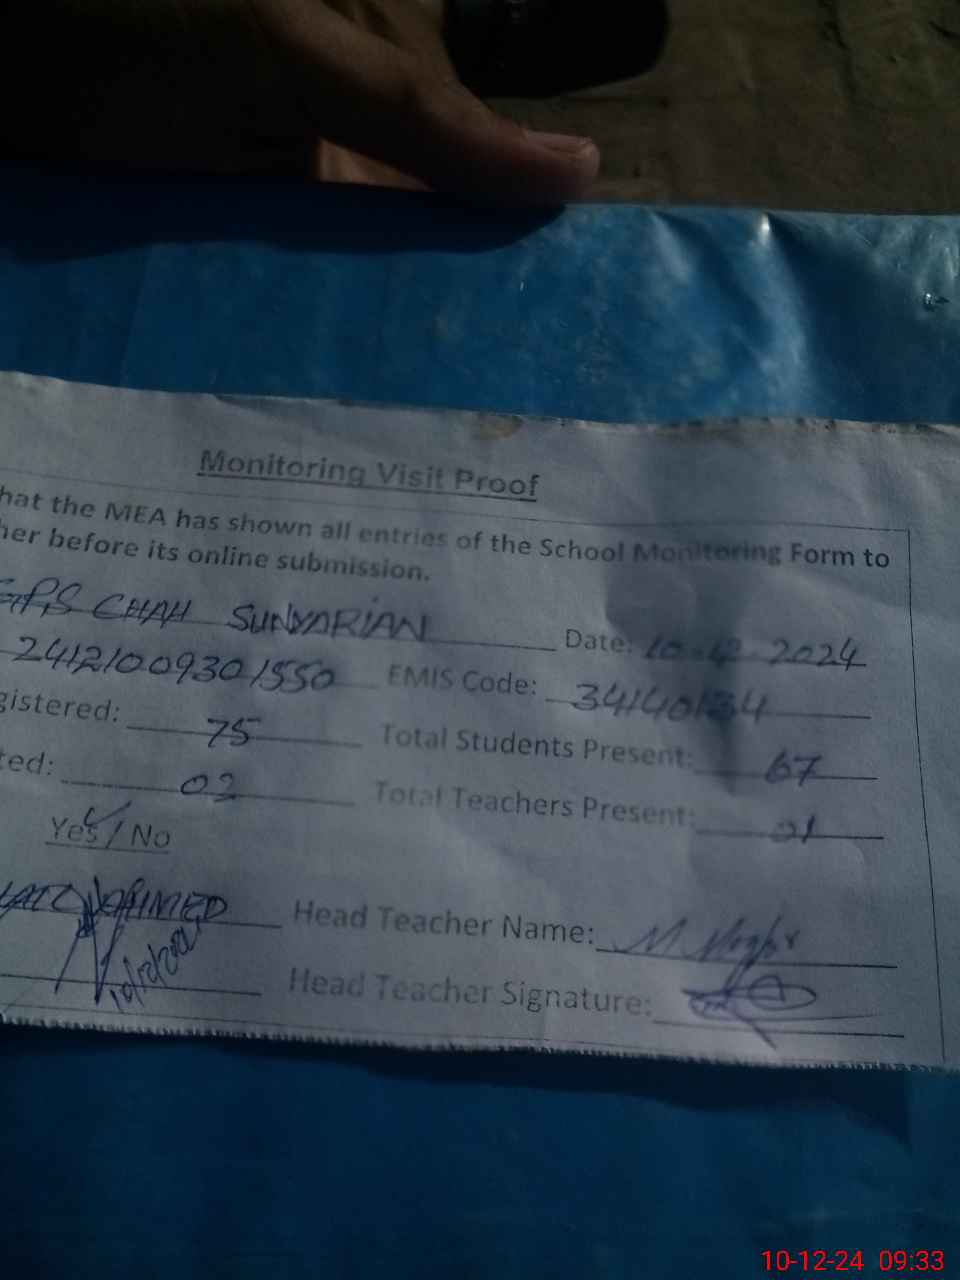 Monitoring Visit Proof
hat the MEA has shown all entries of the School Monitoring Form to
her before its online submission.
GPS CHAH SUNYARIAN Date: 10-12-2024
24121009301550 EMIS Code: 34140134
gistered: 75 Total Students Present: 67
ted: 02 Total Teachers Present: 01
Yes / No
AHMED Head Teacher Name: M
10/12/2024 Head Teacher Signature:
10-12-24 09:33